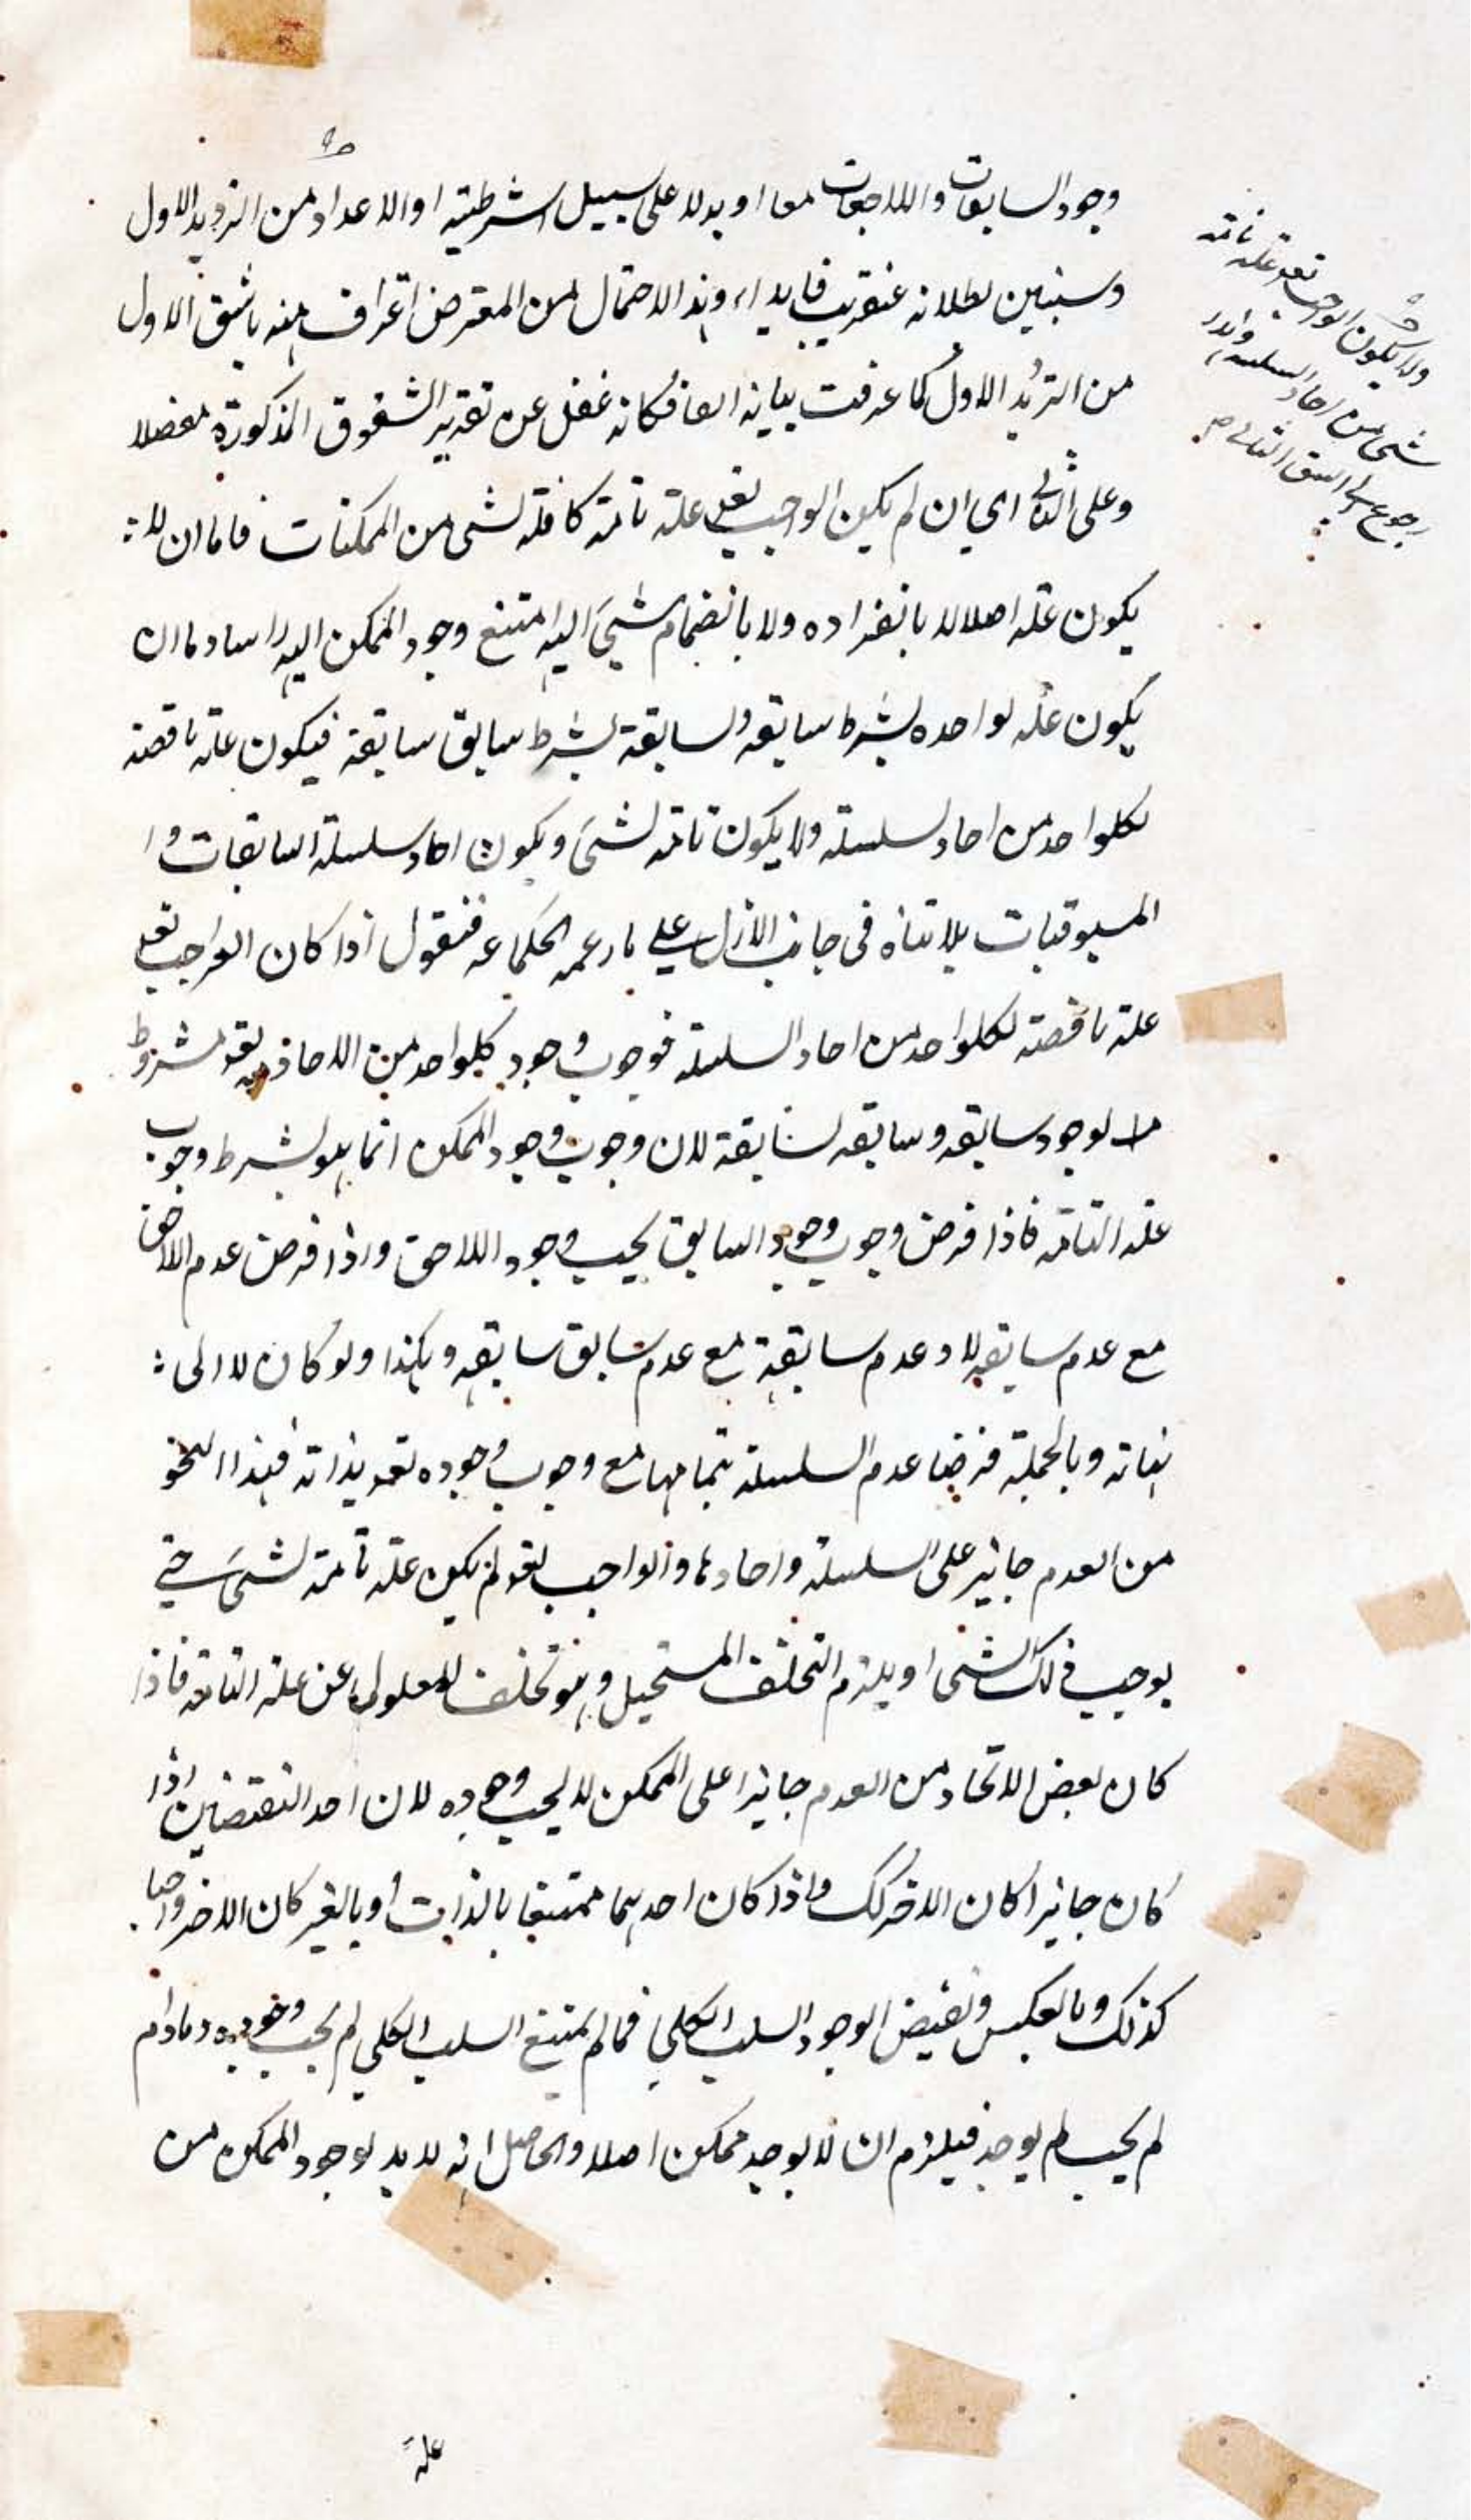 وجود السابقات واللاحقات معا او بدلا على سبيل الشرطية او الاعداد من الترديد الاول
وسنبين بطلانه عنقريب فابداء هذا الاحتمال من المعترض اعتراف منه باشق الاول
من التريد الاول كما عرفت بيانه انفا فكانه غفل عن تقرير الشقوق المذكورة مفصلا
وعلى الثاني اي ان لم يكن الواجب تعم علة تامة كافلة لشى من الممكنات فاما ان لا
يكون علة اصلا لا بانفراده ولا بانضمام شيئ اليه امتنع وجود الممكن اليه راسا واما ان
يكون علة لواحده بشرط سابقه ولسابقة بشرط سابق سابقة فيكون علة ناقصة
لكلواحد من احاد لسلسلة ولا يكون تامة لشئ ويكون احاد سلسلة السابقات و ا
المسبوقيات بلا تناه فى جانب الازل على ما زعمه الحكما عه فنقول اذا كان الواجب تعم
علة ناقصة لكلواحد من احاد السلسلة فوجوب وجود كلواحد من الاحاد به تعم مشروط
بوجود سابقه وسابقه لسابقة لان وجوب وجود الممكن انما هو بشرط وجوب
علة التامة فاذا فرض وجوب وجود السابق يجب وجود اللاحق واذا فرض عدم اللاحق
مع عدم سابقه لا وعدم سابقة مع عدم سابق سابقه وهكذا ولو كان لا الى
نهاته وبالجملة فرضنا عدم السلسلة بتمامها مع وجوب وجوده تعم بذاته فهذا النحو
من العدم جايز على السلسلة واحادها والواجب تعم لم يكن علة تامة لشئ حتى
يوجب ذلك الشى او يلزم التخلف المستحيل وهو تخلف المعلول عن علة التامة فاذا
كان بعض الانحاد من العدم جايزا على الممكن لا يجب وجوده لان احد النقيضين اذا
كان جايزا كان الاخر كك واذا كان احدهما ممتنعا بالذات او بالغير كان الاخر واجبا
كذلك وبالعكس ونقيض الوجود السلب الكلي فما لم يمتنع السلب الكلي لم يجب وجوده ومادام
لم يجب لم يوجد فيلزم ان لا يوجد ممكن اصلا والحاصل انه لا بد لوجود الممكن من
علة
ولا يكون الواجب تعم علة تامة
شى من احاد السلسلة
رجوع الى الشق الثانى